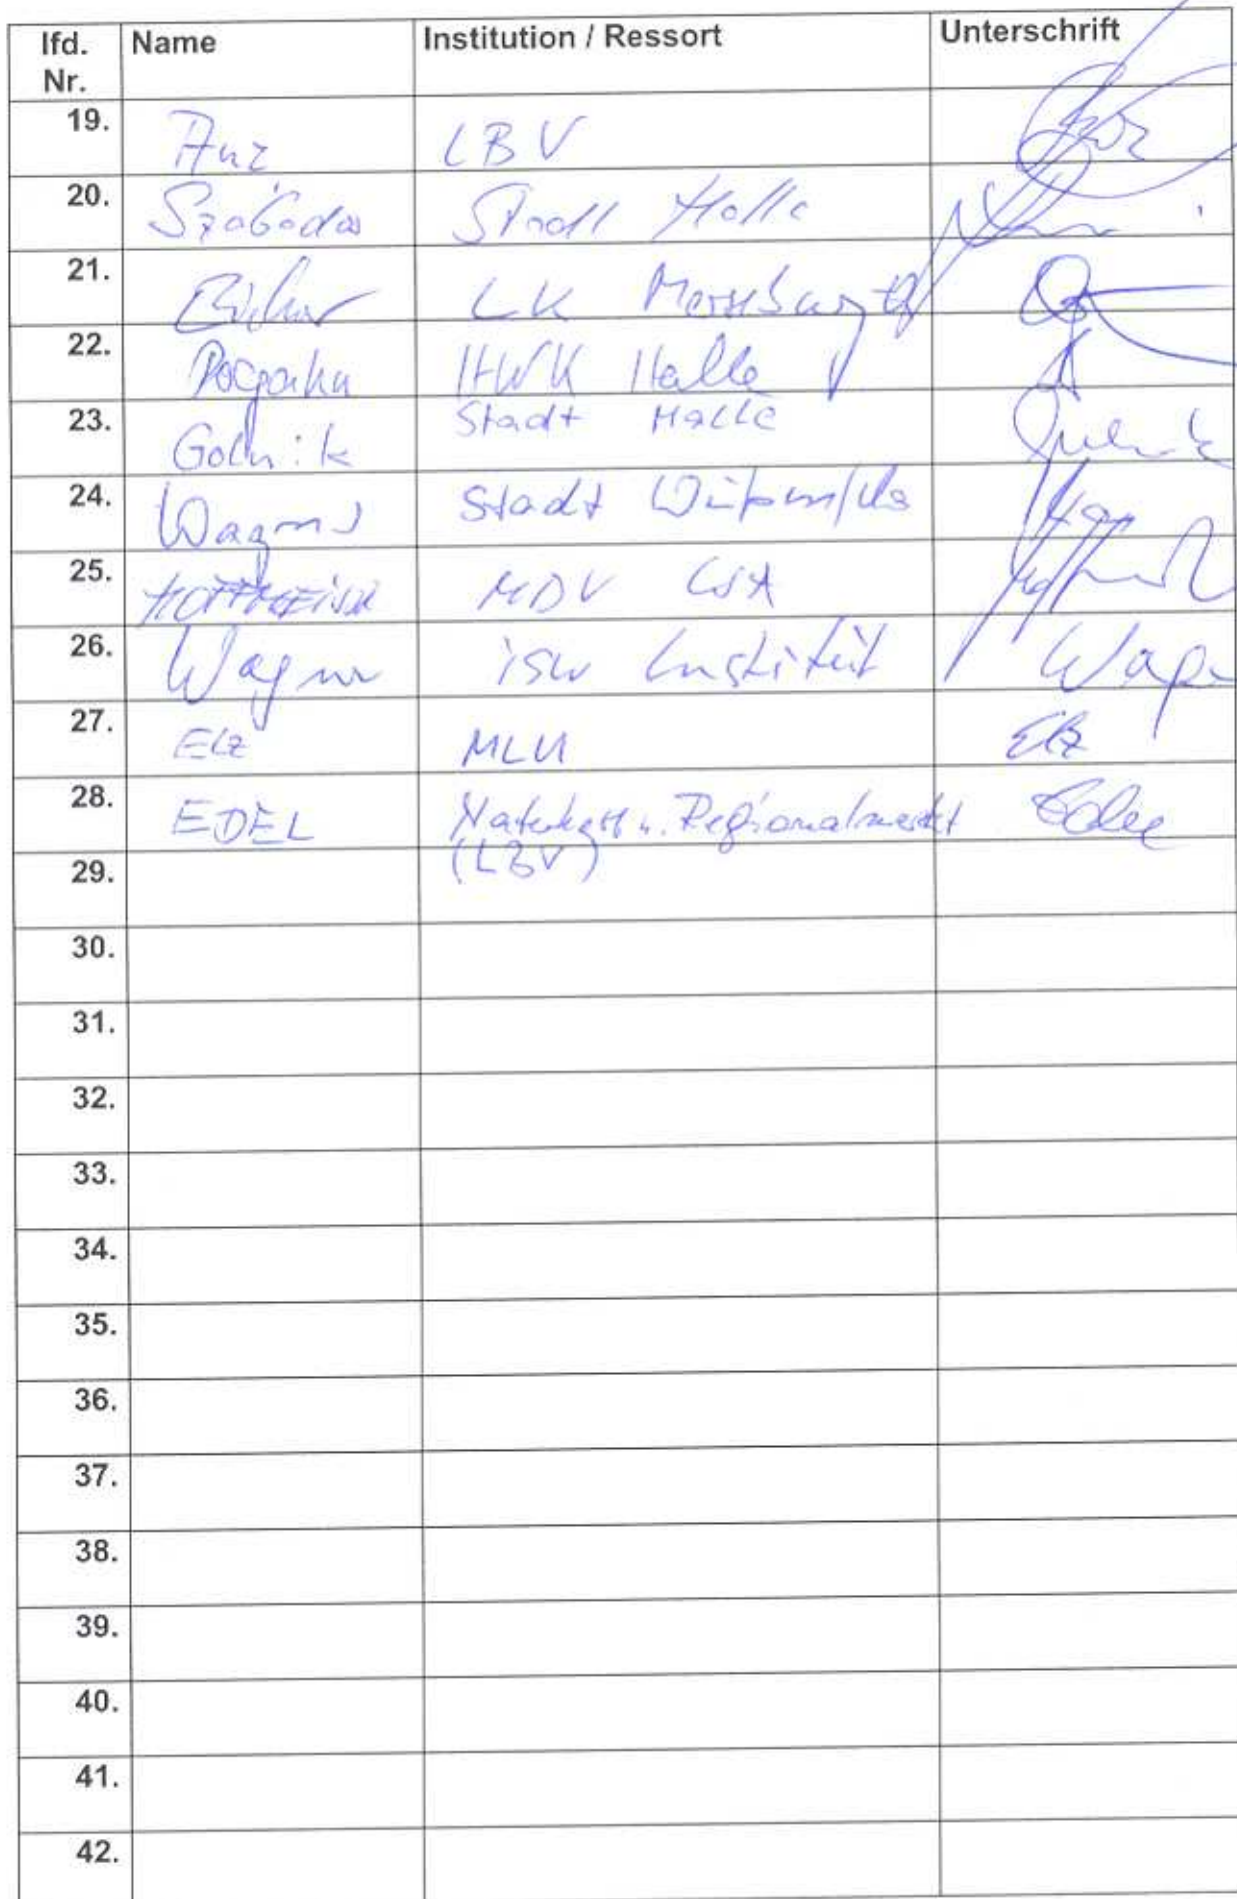 lfd. Nr. Name Institution / Ressort Unterschrift
19. Anz LBV
20. Szabados Stadt Halle
21. LK
22. HWK Halle
23. Golnik Stadt Halle
24. Wagner Stadt
25. HOFFMEISTER MDV LSA
26. Wagner isw Institut Wagner
27. Elz MLU Elz
28. EDEL Regionalmarkt
(LBV)
29.
30.
31.
32.
33.
34.
35.
36.
37.
38.
39.
40.
41.
42.